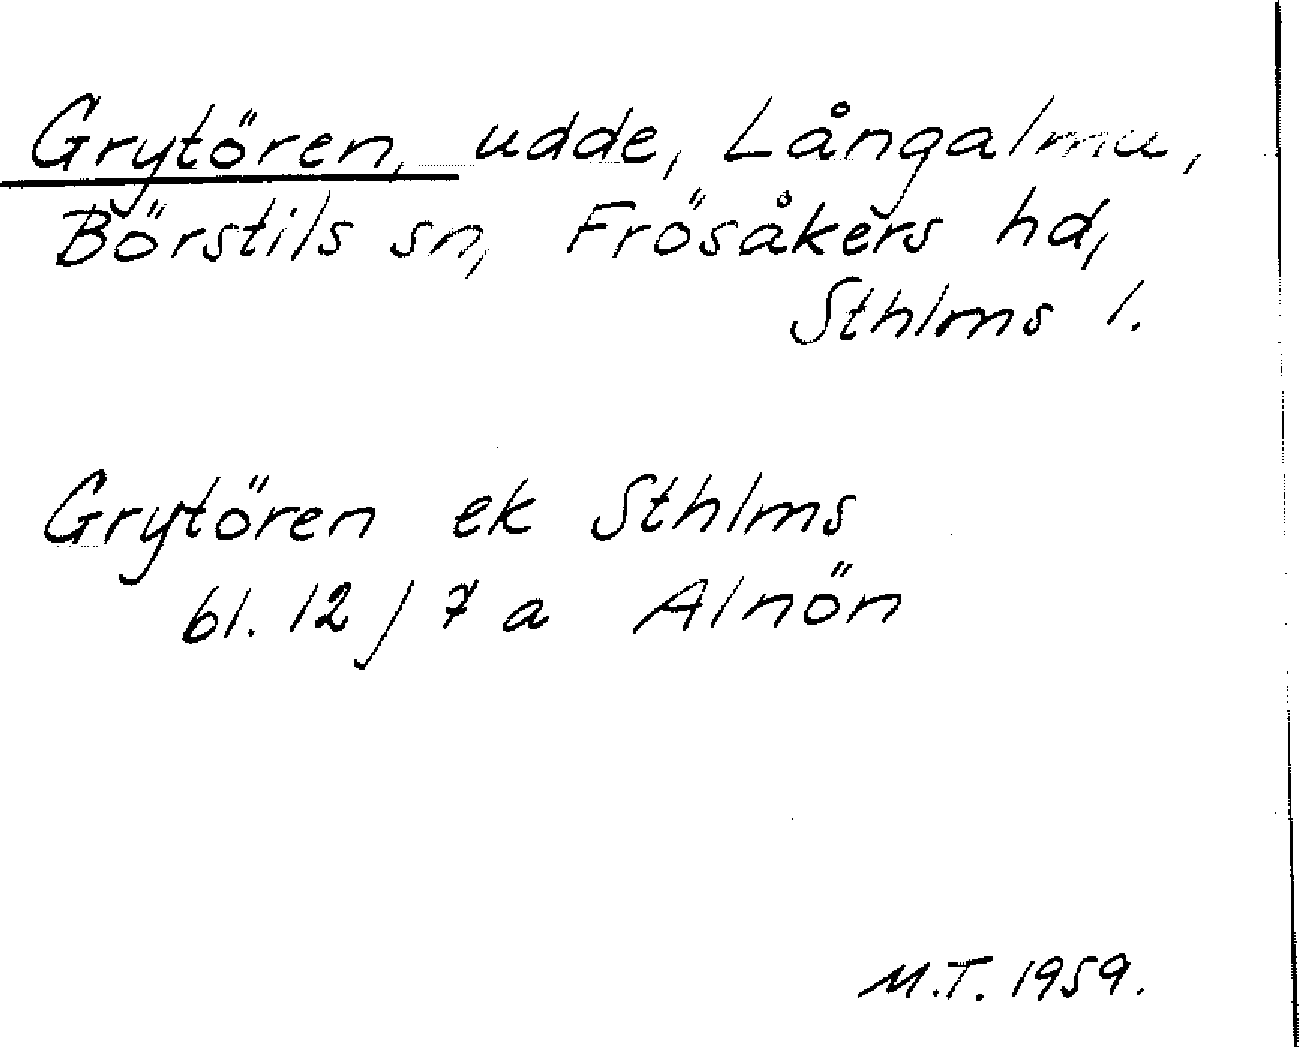 Grytören, udde, Långalma,
Börstils sn, Frösåkers hd,
Sthlms l.
Grytören ek Sthlms
bl. 12 / 7 a Alnön
M.T. 1959.